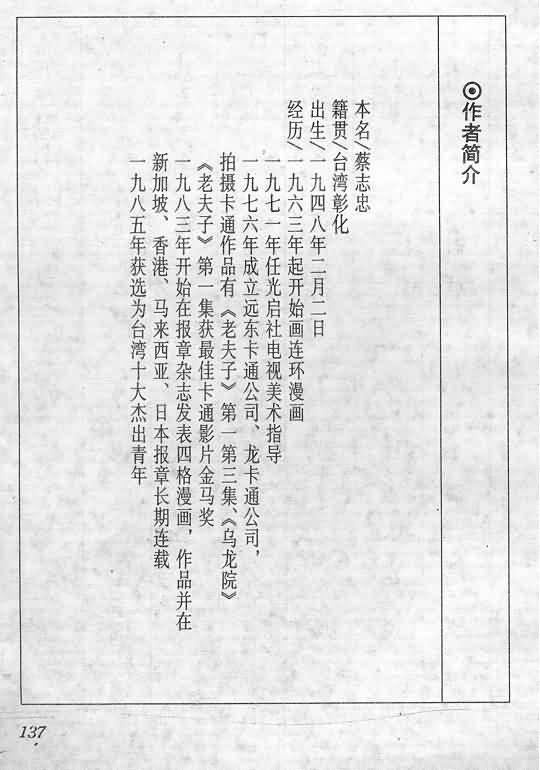 ⊙作者简介
本名/蔡志忠
籍贯/台湾彰化
出生/一九四八年二月二日
经历/一九六三年起开始画连环漫画
一九七一年任光启社电视美术指导
一九七六年成立远东卡通公司、龙卡通公司，
拍摄卡通作品有《老夫子》第一第三集、《乌龙院》
《老夫子》第一集获最佳卡通影片金马奖
一九八三年开始在报章杂志发表四格漫画，作品并在
新加坡、香港、马来西亚、日本报章长期连载
一九八五年获选为台湾十大杰出青年
137